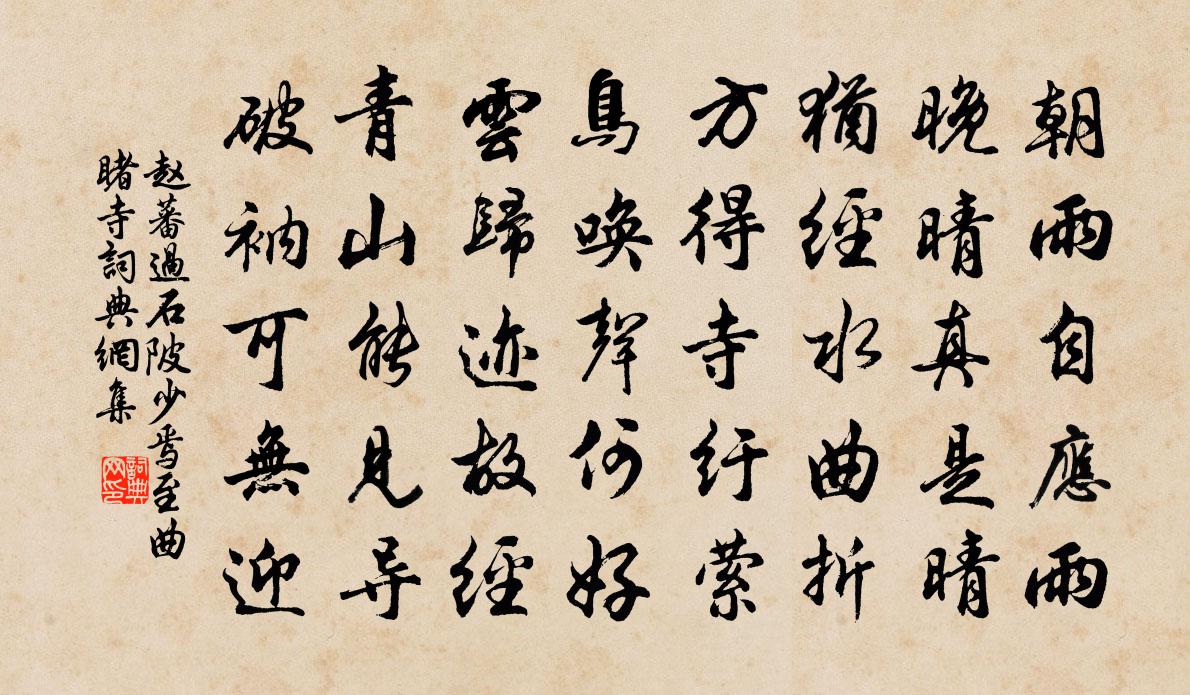 朝雨自應雨
晚晴真是晴
猶經水曲折
方得寺紆縈
鳥喚聲何好
雲歸迹故經
青山能見导
破衲可無迎
赵蕃過石陂少焉至曲
睹寺詞典網集
詞典网印